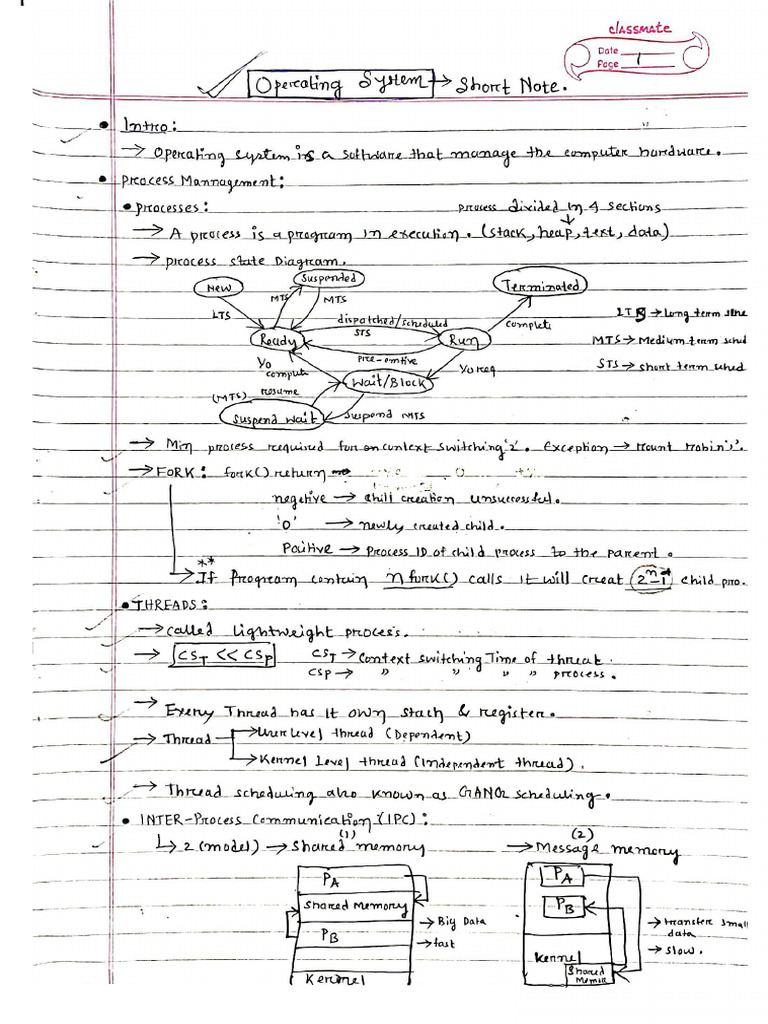 classmate
Date
Page 1
Operating System → Short Note.
• Intro:
→ Operating system is a software that manage the computer hardware.
• Process Management:
• Processes: process divided in 4 sections
→ A process is a program in execution. (stack, heap, text, data)
→ process state Diagram.
New
Suspended
Terminated
MTS
MTS
LTS
dispatched/scheduled
STS
complete
LTS → Long term
Ready
Run
MTS → Medium term sched
Pre-emtive
STS → short term sched
I/o complete
Wait/Block
I/o req
(MTS) resume
Suspend Wait
Suspend MTS
→ Min process required for on context switching '2'. Exception → Round Robin '1'.
→ FORK: fork() return →
negetive → chill creation unsuccessful.
'0' → newly created child.
Positive → Process ID of child process to the parent.
** → If Program contain n fork() calls it will creat 2ⁿ-1 child pro.
• THREADS:
→ called lightweight process.
→ CST << CSP CST → Context switching Time of threat.
CSP → " " " " process.
→ Every Thread has it own stach & register.
→ Thread → User Level thread (Dependent)
→ Kernel Level thread (Independent thread).
→ Thread scheduling also known as GANG scheduling.
• INTER-Process Communication (IPC):
(1) (2)
↳ 2 (model) → Shared memory → Message memory
PA
Shared Memory
PB
Kernel
→ Big Data
→ fast
PA
PB
Kernel
Shared
→ transfer small data
→ slow.